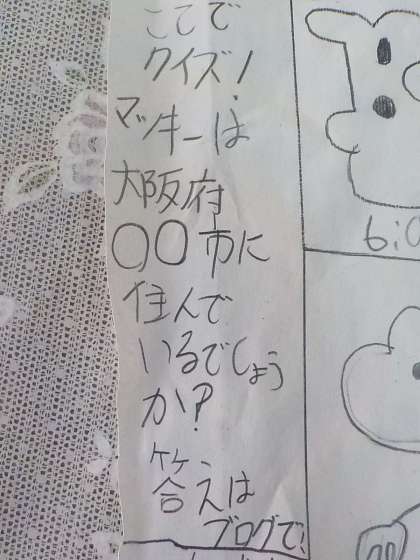 ここで
クイズ!
マッキーは
大阪府
〇〇市に
住んで
いるでしょう
か?
答えは
ブログで!
6:0